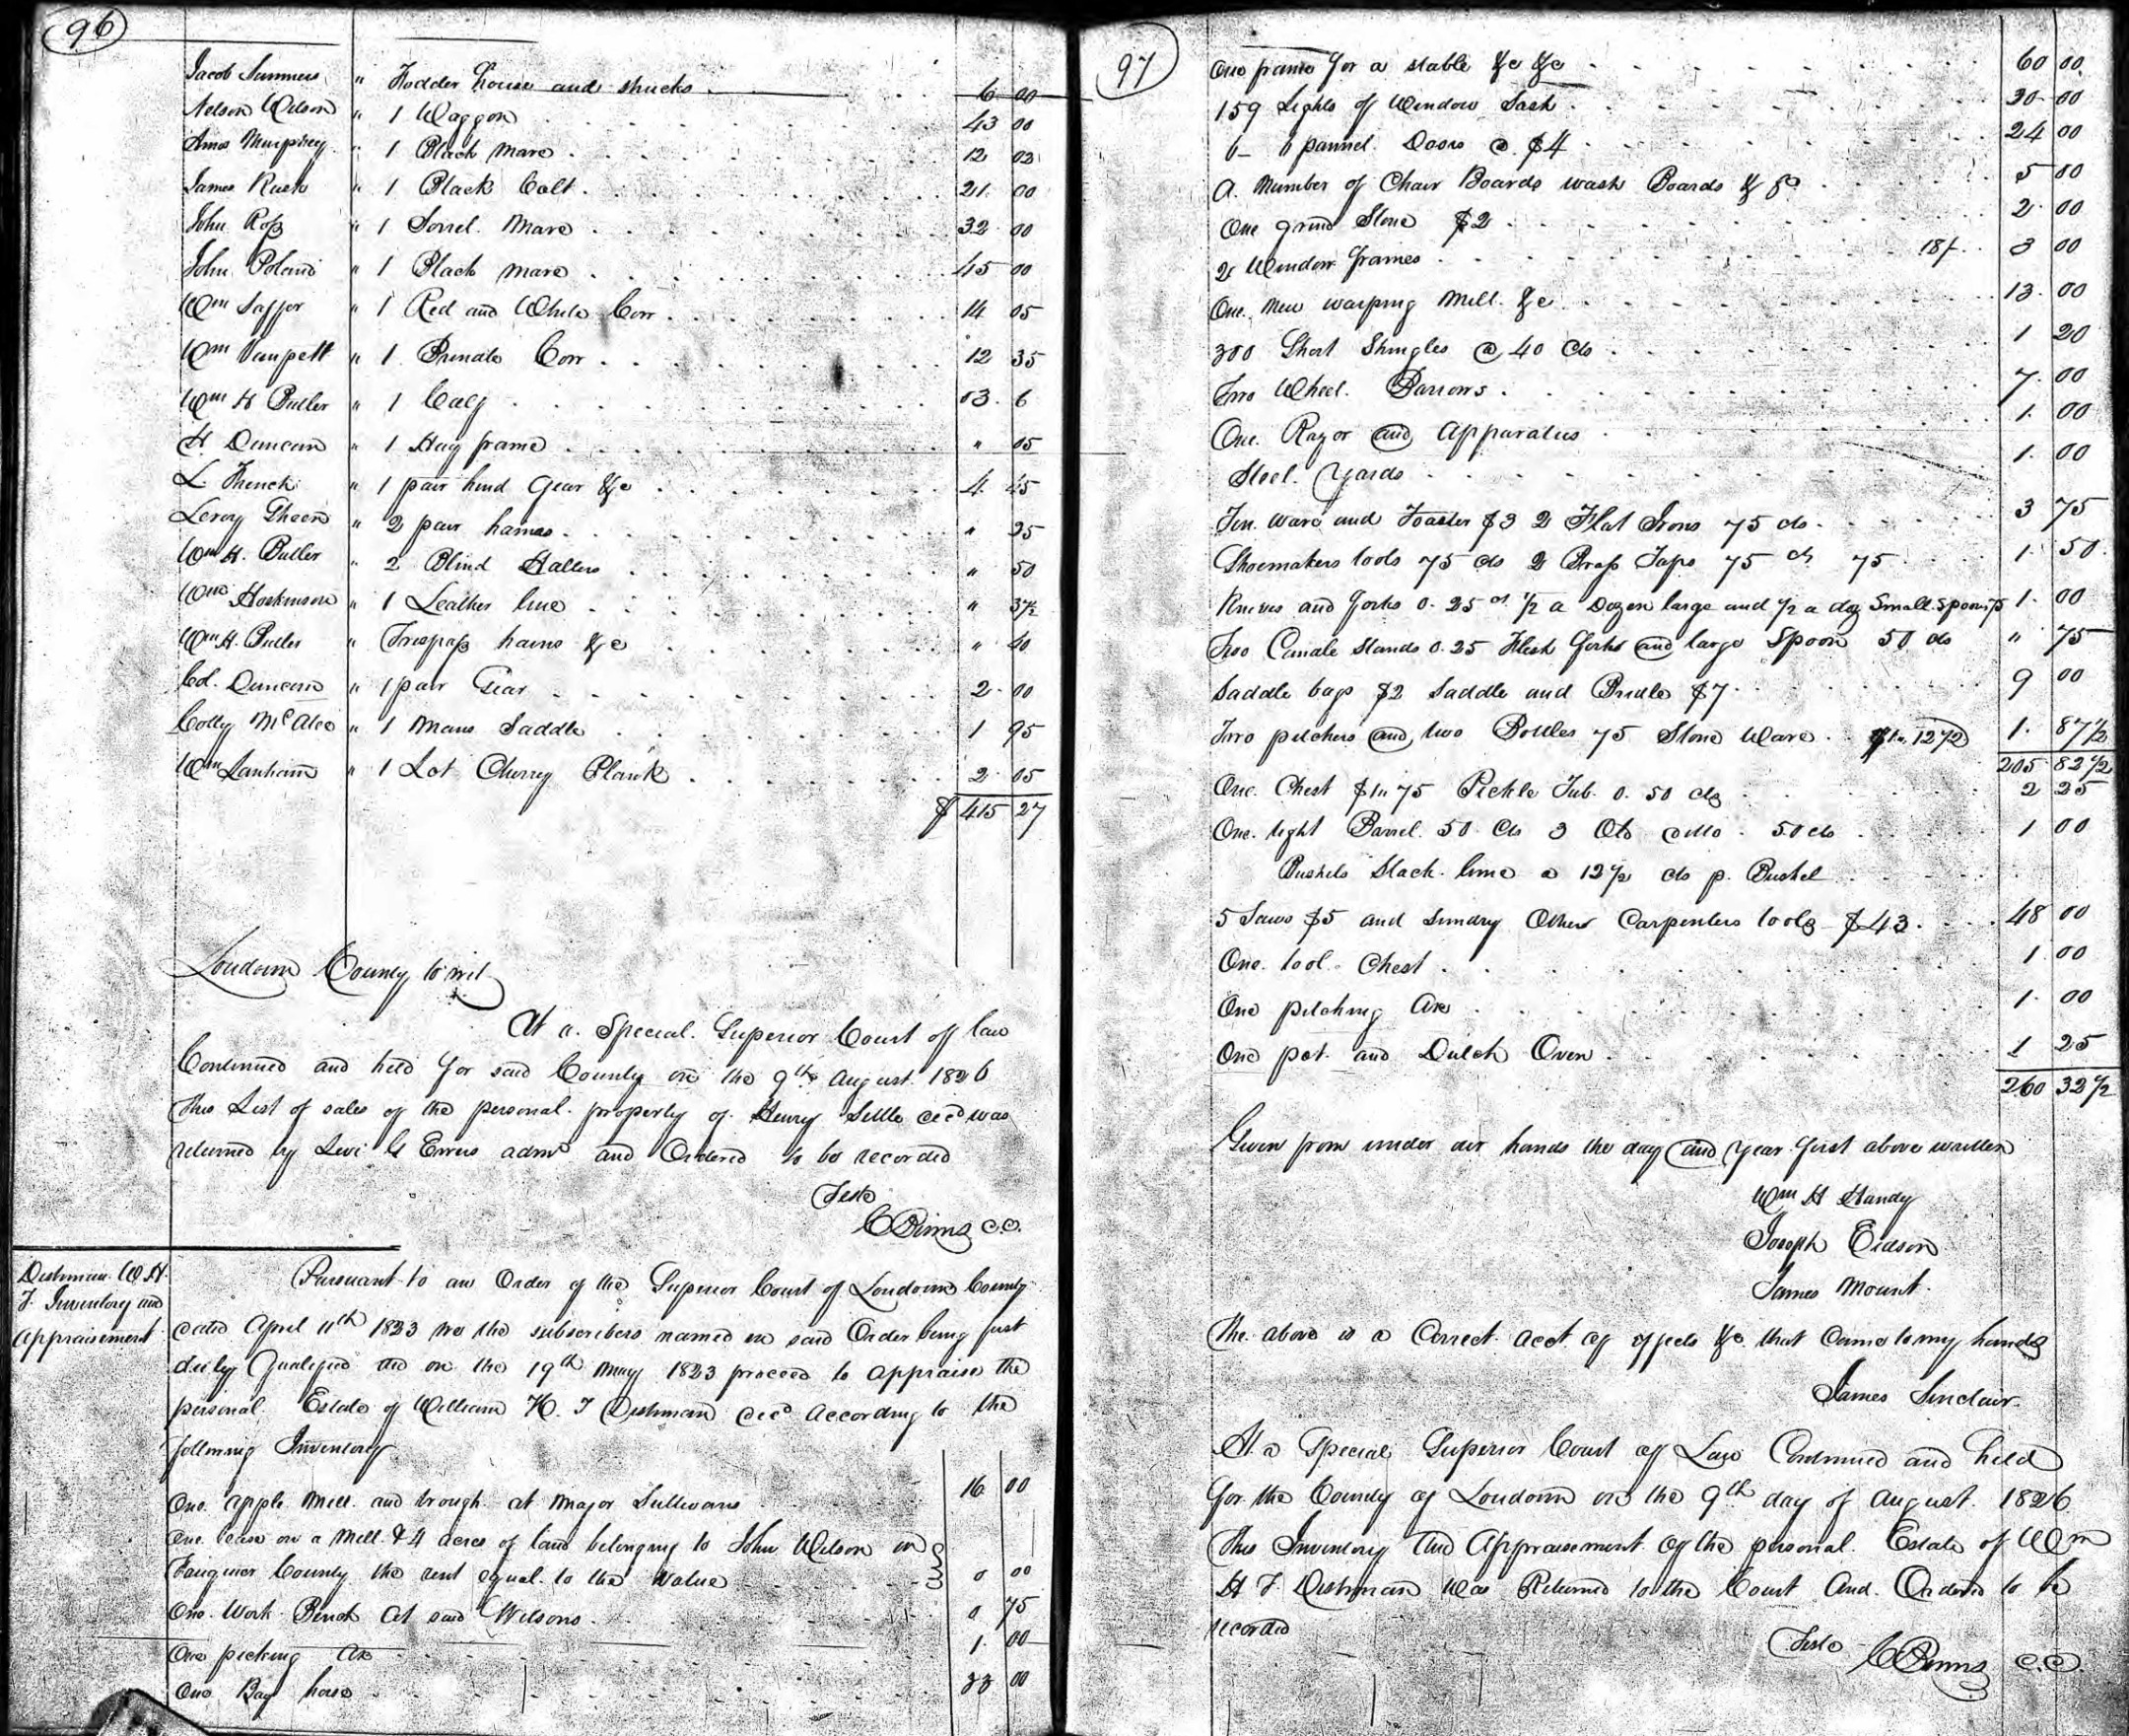 96
Jacob Summers " Fodder house and shucks 6 00
Nelson Wilson " 1 Waggon 43 00
Amos Murphrey " 1 Black mare 12 03
James Rust " 1 Black Colt 21 00
John Roſs " 1 Sorrel Mare 32 00
John Poland " 1 Black mare 45 00
Wm Saffer " 1 Red and White Cow 14 05
Wm " 1 Brindle Cow 12 35
Wm H Butler " 1 Calf 03 6
H. Duncan " 1 Hay frame " 05
L " 1 pair hind Gear &c 4 45
Leroy " 2 pair hames " 25
Wm H. Butler " 2 Blind Halters " 50
Wm Hoskinson " 1 Leather line " 37½
Wm H. Butler " hams &c " 40
Col. Duncan " 1 pair Gear 2 00
Colly McAtee " 1 Mans Saddle 1 95
Wm Lanham " 1 Lot Cherry Plank 2 05
$ 415 27
Loudoun County to wit
At a Special Superior Court of law
Continued and held for said County on the 9th August 1826
This List of sales of the personal property of Henry Settle decd was
returned by Levi G Ewers admr and Ordered to be recorded
Teste
C Binns C.C.
Dishman W. H.
T. Inventory and
Appraisement
Pursuant to an Order of the Superior Court of Loudoun County
dated April 11th 1823 we the subscribers named in said Order being first
duly Qualified did on the 19th May 1823 proceed to appraise the
personal Estate of William H. T Dishman decd According to the
following Inventory
One apple Mill and trough at Major Sullivans 16 00
One lease on a Mill & 4 acres of land belonging to John Wilson in
Fauquier County the rent equal to the value 0 00
One Work Bench at said Wilsons 0 75
One pecking Ax 1 00
One Bay horse 33 00
97
One frame for a stable &c &c 60 00
159 Lights of Window Sash 30 00
6 - 6 pannel Doors @ $4 24 00
A Number of Chair Boards wash Boards & &c 5 00
One grind Stone $2 2 00
2 Window frames 18/ 3 00
One New warping Mill &c 13 00
300 Short Shingles @ 40 cts 1 20
Two Wheel Barrows 7 00
One Razor and Apparatus 1 00
Steel Yards 1 00
Tin ware and Toaster $3 2 Flat Irons 75 cts 3 75
Shoemakers tools 75 cts 2 Braſs Taps 75 cts 75 1 50
Knives and forks 0.25 cts ½ a Dozen large and ½ a doz Small spoons 75 1 00
Two Candle Stands 0.25 Flesh forks and large Spoon 50 cts " 75
Saddle bags $2 Saddle and Bridle $7 9 00
Two pitchers and two Bottles 75 Stone Ware $1.12½ 1 87½
205 82½
One Chest $1.75 Pickle Tub 0.50 cts 2 25
One tight Barrel 50 Cts 3 Old ditto 50 cts 1 00
Bushels Slack lime a 12½ cts p. Bushel
5 Saws $5 and Sundry Other Carpenters tools $43 48 00
One tool Chest 1 00
One pitching Axe 1 00
One pot and Dutch Oven 1 25
260 32½
Given from under our hands the day and year first above written
Wm H Handy
Joseph Eidson
James Mount
The above is a Correct acct of effects &c that Came to my hands
James Sinclair
At a Special Superior Court of Law Continued and held
for the County of Loudoun on the 9th day of August 1826
This Inventory and Appraisement of the personal Estate of Wm
H T. Dishman was Returned to the Court And Ordered to be
recorded
Teste C Binns C.C.